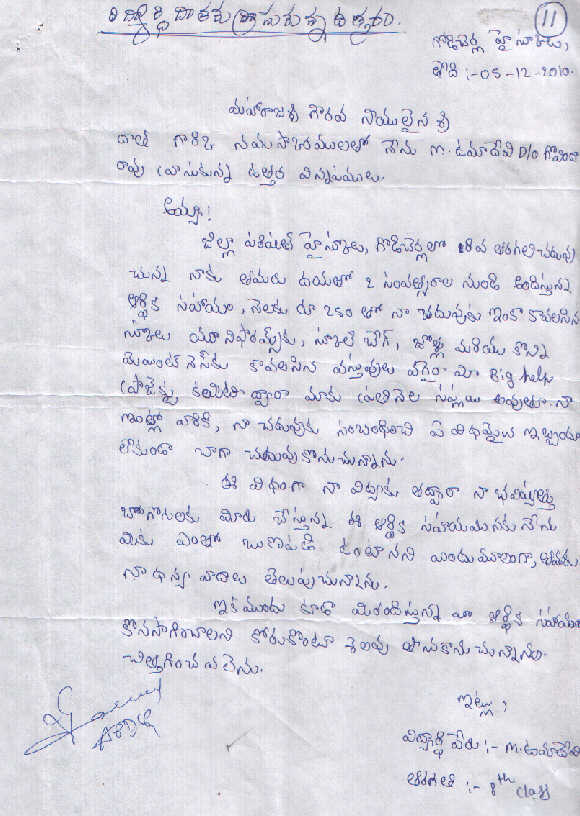 విద్యార్థి దాతకు వ్రాసుకున్న ఉత్తరం.
11
గొడిచెర్ల హై స్కూలు,
తేది :- 05-12-2010.
మహారాజశ్రీ గౌరవ నీయులైన శ్రీ
దాత గారికి నమస్కారములతో నేను M. ఉమాదేవి D/o గోవిందా
రావు వ్రాసుకున్న ఉత్తర విన్నపములు.
అయ్యా!
జిల్లా పరిషత్ హైస్కూలు, గొడిచెర్లలో 8వ తరగతి చదువు
చున్న నాకు తమరు దయతో 2 సంవత్సరాల నుండి అందిస్తున్న
ఆర్థిక సహాయం, నెలకు రూ 250 తో నా చదువుకు ఇంకా కావలసిన
స్కూలు యూనిఫారమ్స్‌కు, స్కూల్ బ్యాగ్, జోళ్ళు మరియు కొన్ని
కావలసిన వస్తువులు వగైరా మా Big help
ప్రాజెక్టు కమిటి ద్వారా మాకు ప్రతినెల సప్లయి అవుతూ నా
ఇంట్లో వారికి, నా చదువుకు సంబంధించి ఏ విధమైన ఇబ్బందులు
లేకుండా బాగా చదువుకొనుచున్నాను.
ఈ విధంగా నా విద్యకు తద్వారా నా భవిష్యత్తు
బాగోగులకు మీరు చేస్తున్న ఈ ఆర్థిక సహాయమునకు నేను
మీకు ఎంతో ఋణపడి ఉంటానని యిందుమూలంగా, తమకు
నా ధన్యవాదాలు తెలుపుచున్నాను.
ఇక ముందు కూడా మీరందిస్తున్న ఈ ఆర్థిక సహాయం
కొనసాగించాలని కోరుకొంటూ శెలవు తీసుకొనుచున్నాను.
చిత్తగించవలెను.
ఇట్లు,
విద్యార్థి పేరు :- M. ఉమాదేవి
తరగతి :- 8th class